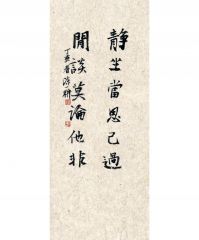 靜坐當思己過
閒談莫論他非
丁亥春